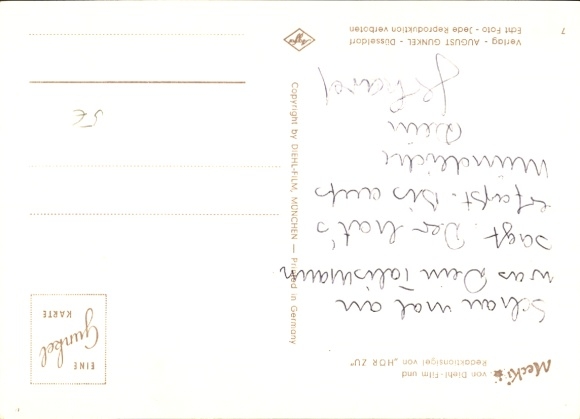 Mecki
von Diehl-Film und
Redaktionsigel von „HÖR ZU"
Schau mal an
was Dein Talismann
sagt. Der hat's
erfaßt. Bis aufs
Mündliche
Dein
Verlag - AUGUST GUNKEL - Düsseldorf
Echt Foto - Jede Reproduktion verboten
7
Copyright by DIEHL-FILM, MÜNCHEN — Printed in Germany
Agfa
EINE
Gunkel
KARTE
5€